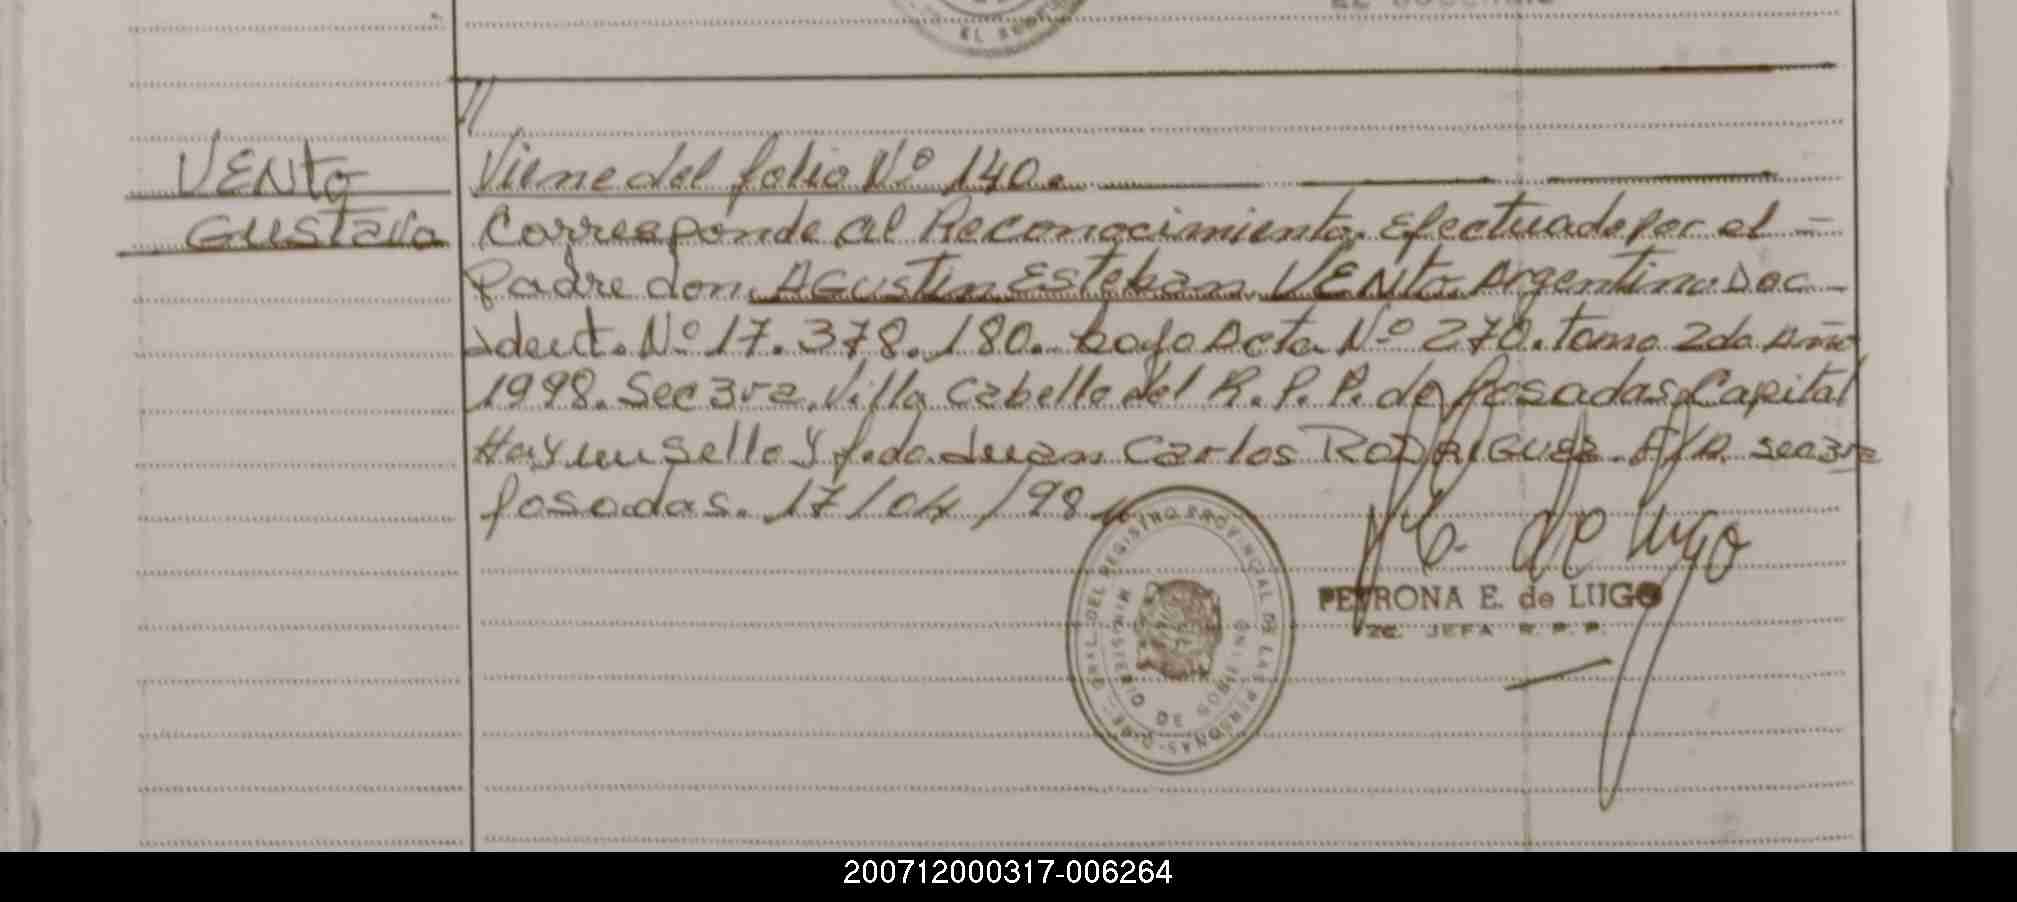 EL
//
VENTO
Viene del folio Nº 140.
GUSTAVO
Corresponde al Reconocimiento Efectuado por el =
Padre don AGUSTIN ESTEBAN VENTO Argentino Doc
Ident. Nº 17.378.180. bajo Acta Nº 270. tomo 2do Año
1998. Sec 3ra. Villa Cabello del R.P.P. de Posadas Capital
Hay un sello y fdo. Juan Carlos RODRIGUEZ. A/R. sec 3ra
Posadas. 17/04/98
DE LUGO
PETRONA E. de LUGO
JEFA R. P. P.
GRAL. DEL REGISTRO PROVINCIAL DE LAS PERSONAS
MINISTERIO DE GOBIERNO
200712000317-006264